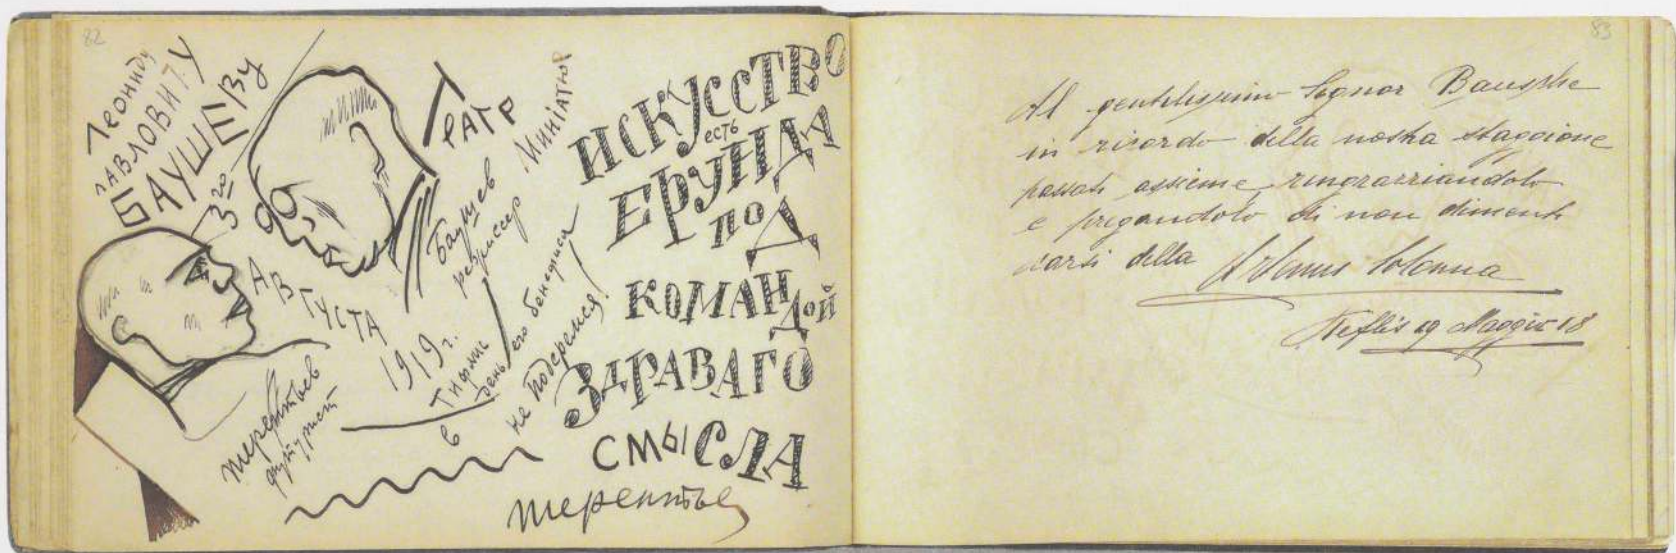 82
Леониду
Павловичу
Баушеву
3го
Августа
1919 г.
Тифлис
в день его бенефиса
не подеремся!
Театр
Миніатюр
Баушев
режиссер
Терентьев
футурист
Искусство
есть
ерунда
под
командой
здраваго
смысла
Терентьев
83
Al gentilissimo Signor Baushe
in ricordo della nostra staggione
passata assieme, ringrazziandolo
e pregandolo di non dimenti
carsi della
Colonna
Teflis 19 Maggio 18